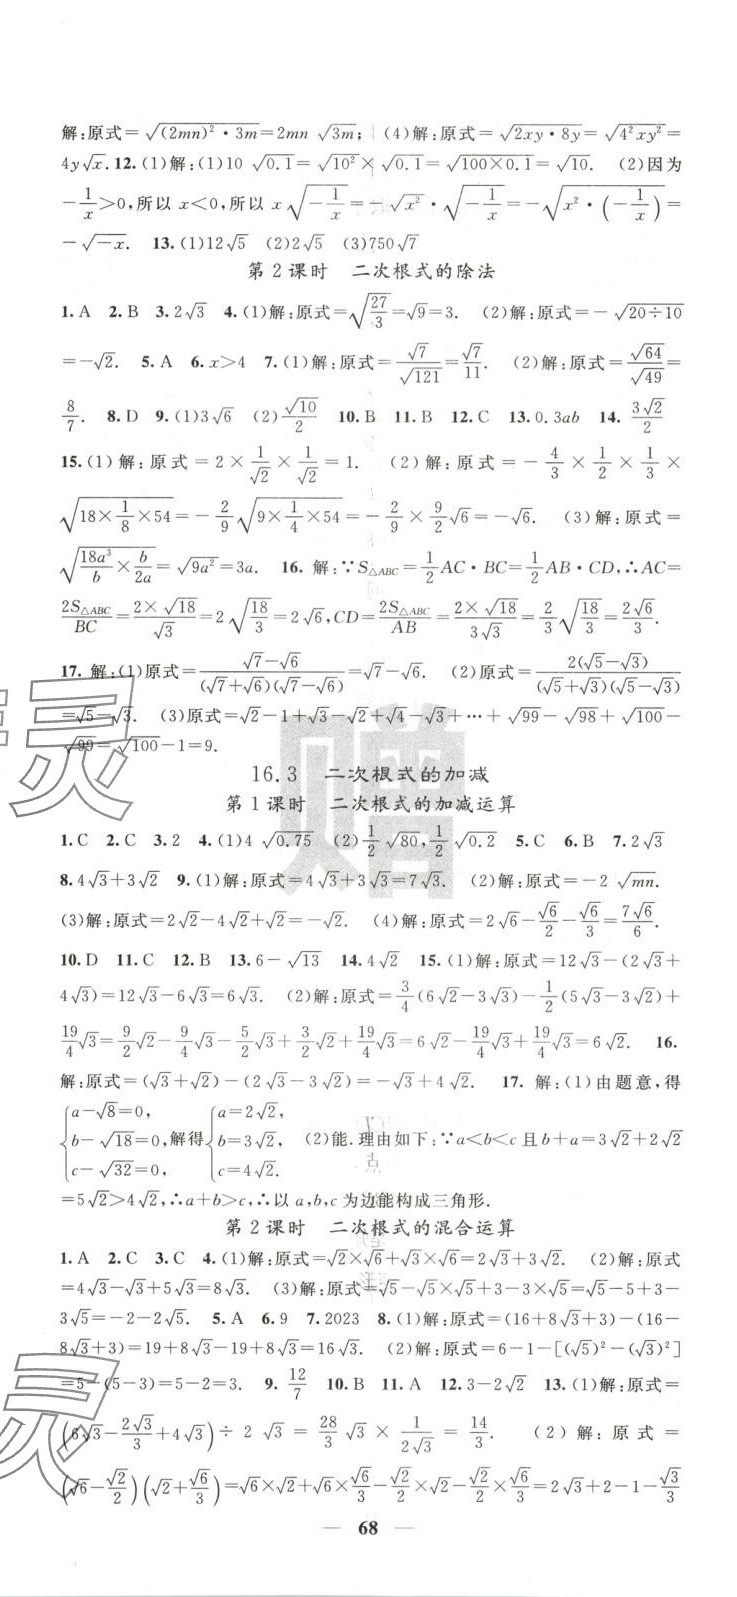 解:原式=√((2mn)²·3m)=2mn√(3m); (4)解:原式=√(2xy·8y)=√(4²xy²)=
4y√x. 12.(1)解:(1)10√0.1=√10²×√0.1=√(100×0.1)=√10. (2)因为
-1/x>0,所以 x<0,所以 x√(-1/x)=-√x²·√(-1/x)=-√(x²·(-1/x))=
-√(-x). 13.(1)12√5 (2)2√5 (3)750√7
第2课时 二次根式的除法
1.A 2.B 3.2√3 4.(1)解:原式=√(27/3)=√9=3. (2)解:原式=-√(20÷10)
=-√2. 5.A 6.x>4 7.(1)解:原式=√7/√121=√7/11. (2)解:原式=√64/√49=
8/7. 8.D 9.(1)3√6 (2)√10/2 10.B 11.B 12.C 13.0.3ab 14.3√2/2
15.(1)解:原式=2×1/√2×1/√2=1. (2)解:原式=-4/3×1/2×1/3×
√(18×1/8×54)=-2/9√(9×1/4×54)=-2/9×9/2√6=-√6. (3)解:原式=
√(18a³/b×b/2a)=√(9a²)=3a. 16.解:∵S△ABC=1/2AC·BC=1/2AB·CD,∴AC=
2S△ABC/BC=2×√18/√3=2√(18/3)=2√6,CD=2S△ABC/AB=2×√18/3√3=2/3√(18/3)=2√6/3.
17.解:(1)原式=(√7-√6)/((√7+√6)(√7-√6))=√7-√6. (2)原式=2(√5-√3)/((√5+√3)(√5-√3))
=√5-√3. (3)原式=√2-1+√3-√2+√4-√3+…+√99-√98+√100-
√99=√100-1=9.
16.3 二次根式的加减
第1课时 二次根式的加减运算
1.C 2.C 3.2 4.(1)4√0.75 (2)1/2√80,1/2√0.2 5.C 6.B 7.2√3
8.4√3+3√2 9.(1)解:原式=4√3+3√3=7√3. (2)解:原式=-2√mn.
(3)解:原式=2√2-4√2+√2=-√2. (4)解:原式=2√6-√6/2-√6/3=7√6/6.
10.D 11.C 12.B 13.6-√13 14.4√2 15.(1)解:原式=12√3-(2√3+
4√3)=12√3-6√3=6√3. (2)解:原式=3/4(6√2-3√3)-1/2(5√3-3√2)+
19/4√3=9/2√2-9/4√3-5/2√3+3/2√2+19/4√3=6√2-19/4√3+19/4√3=6√2. 16.
解:原式=(√3+√2)-(2√3-3√2)=-√3+4√2. 17.解:(1)由题意,得
{a-√8=0, b-√18=0, c-√32=0, 解得{a=2√2, b=3√2, c=4√2. (2)能.理由如下:∵a<b<c且b+a=3√2+2√2
=5√2>4√2,∴a+b>c,∴以a,b,c为边能构成三角形.
第2课时 二次根式的混合运算
1.A 2.C 3.C 4.(1)解:原式=√2×√6+√3×√6=2√3+3√2. (2)解:原式
=4√3-√3+5√3=8√3. (3)解:原式=√5-√5×√5+3-3×√5=√5-5+3-
3√5=-2-2√5. 5.A 6.9 7.2023 8.(1)解:原式=(16+8√3+3)-(16-
8√3+3)=19+8√3-19+8√3=16√3. (2)解:原式=6-1-[(√5)²-(√3)²]
=5-(5-3)=5-2=3. 9.12/7 10.B 11.A 12.3-2√2 13.(1)解:原式=
(6√3-2√3/3+4√3)÷2√3=28/3√3×1/2√3=14/3. (2)解:原式=
(√6-√2/2)(√2+√6/3)=√6×√2+√6×√6/3-√2/2×√2-√2/2×√6/3=2√3+2-1-√3/3
— 68 —
赠
灵
灵